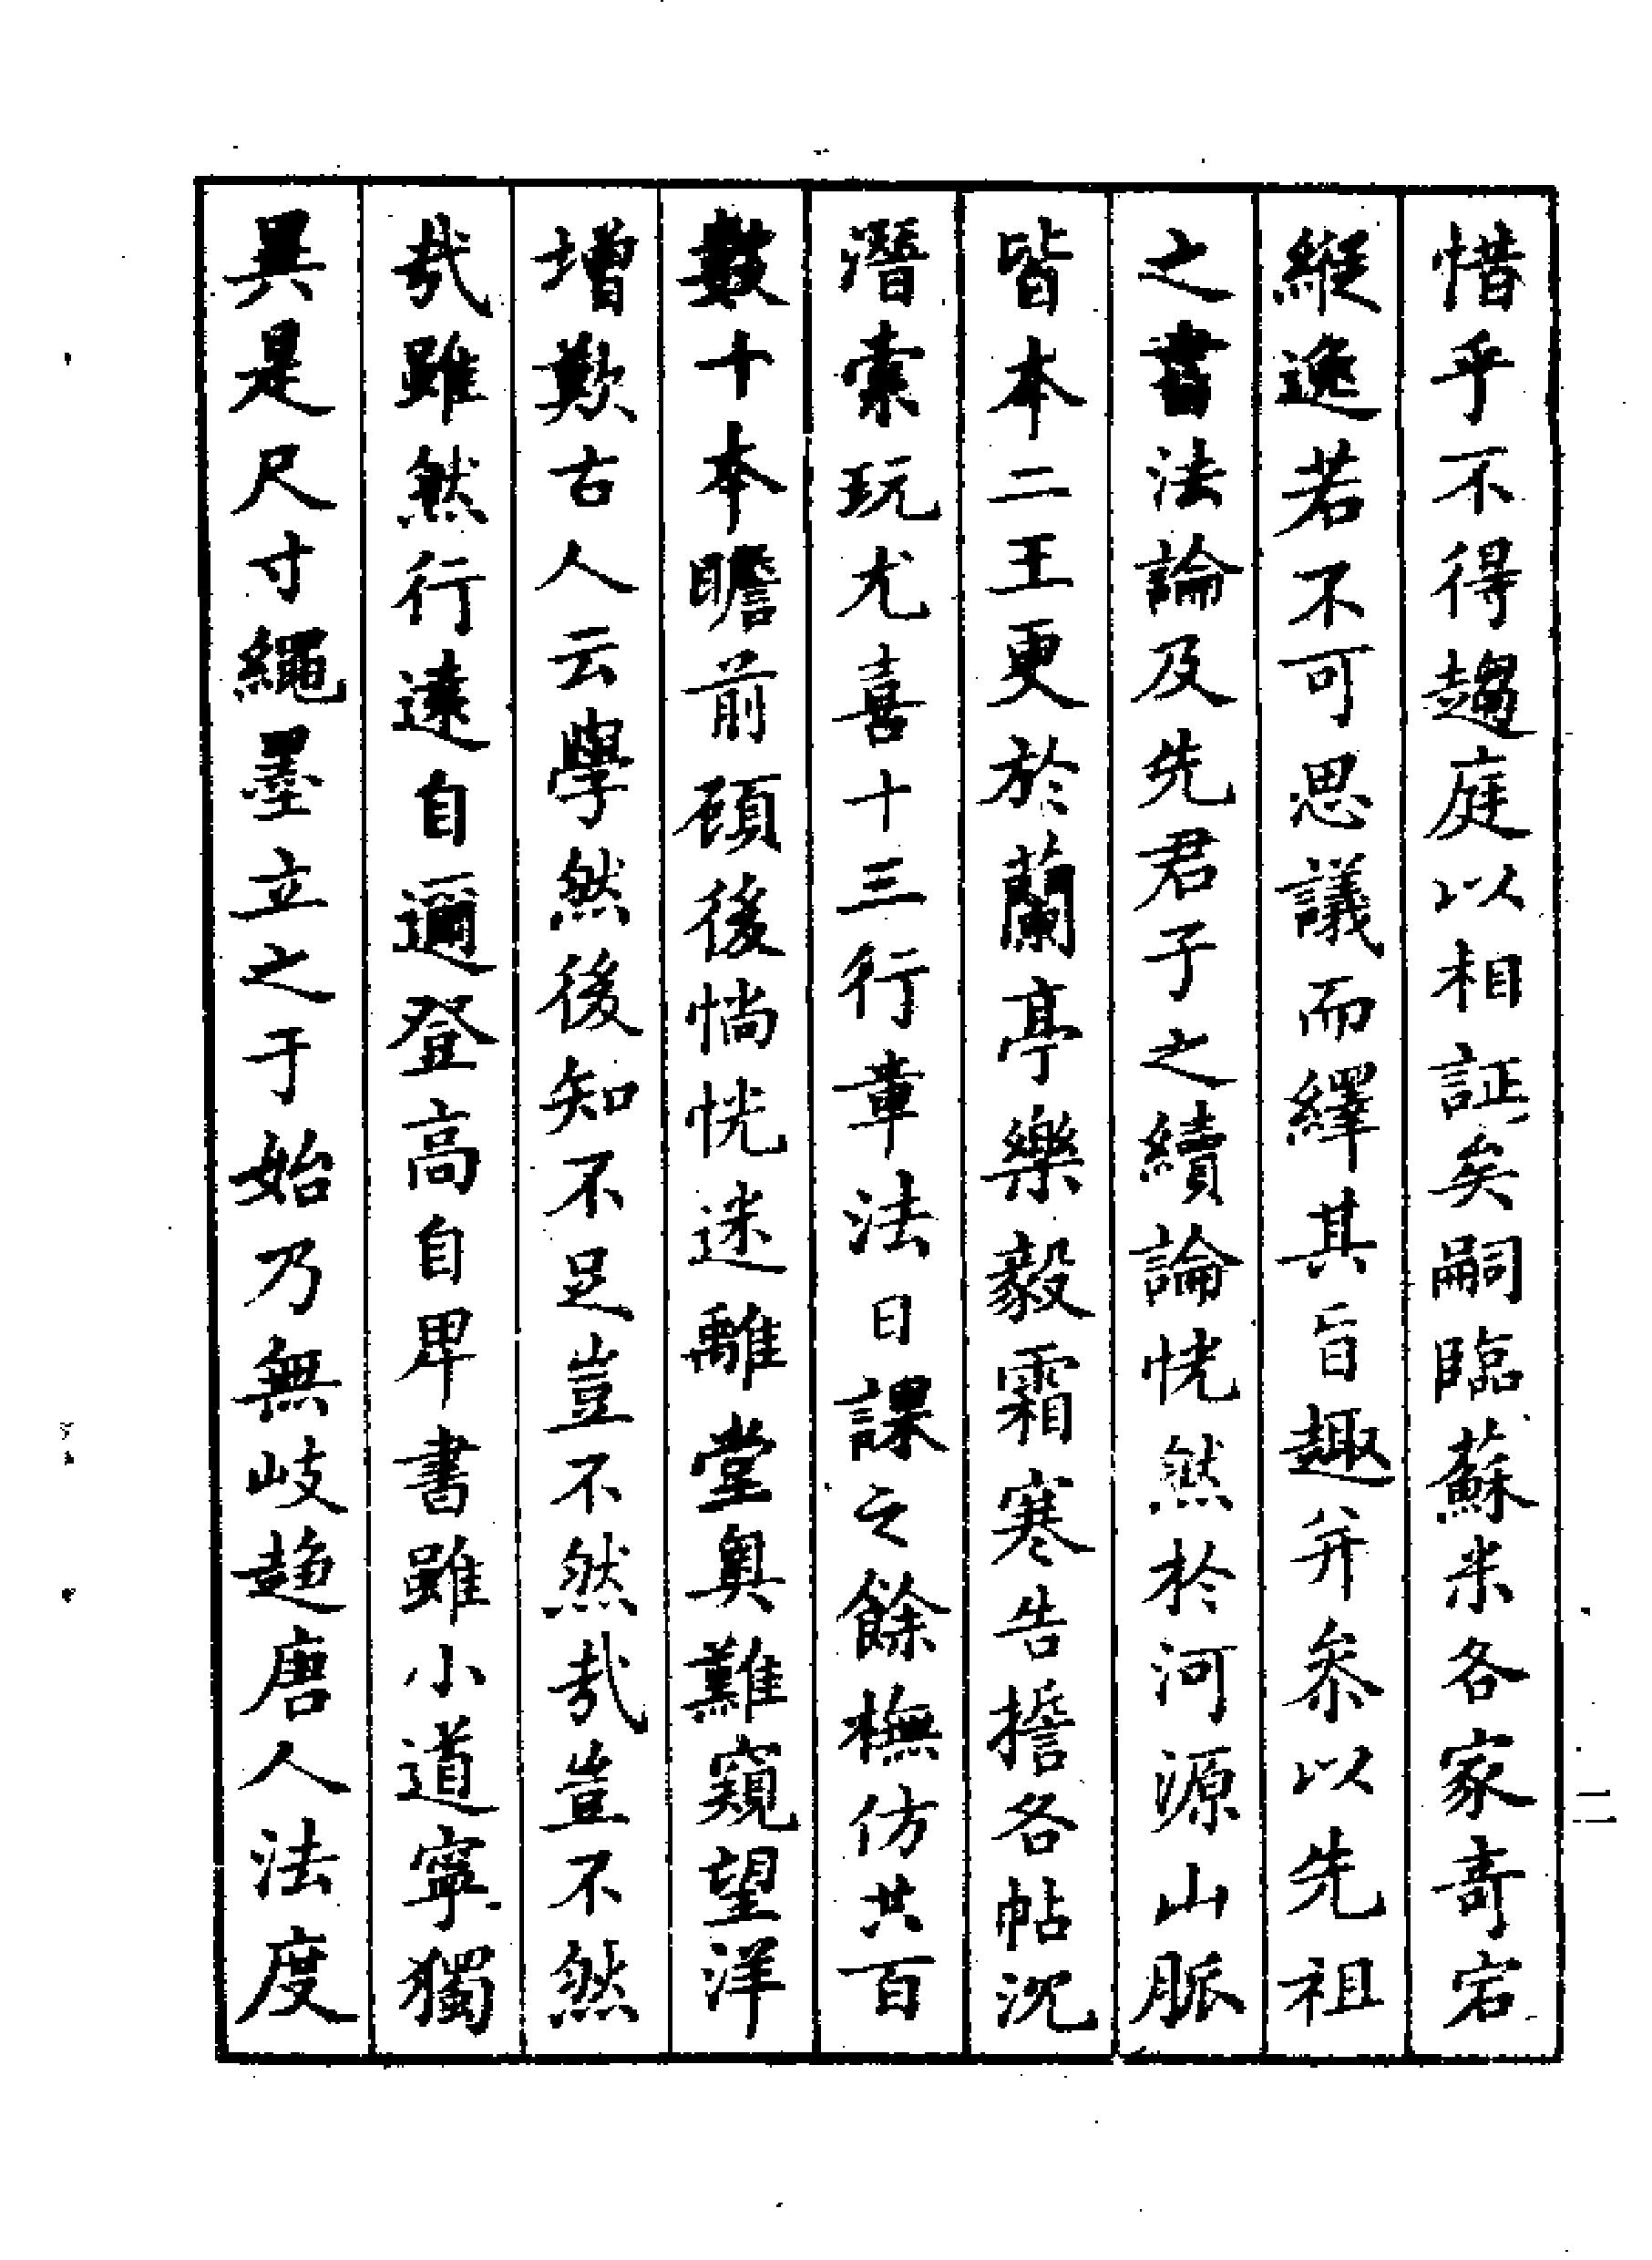 惜乎不得趨庭以相証矣嗣臨蘇米各家奇宕
縱逸若不可思議而繹其旨趣并叅以先祖
之書法論及先君子之續論恍然於河源山脈
皆本二王更於蘭亭樂毅霜寒告擔各帖沉
潛索玩尤喜十三行章法日課之餘橅仿共百
數十本瞻前顧後惝恍迷離堂奧難窺望洋
增歎古人云學然後知不足豈不然哉豈不然
哉雖然行遠自邇登高自卑書雖小道寧獨
異是尺寸繩墨立之于始乃無歧趋唐人法度
二